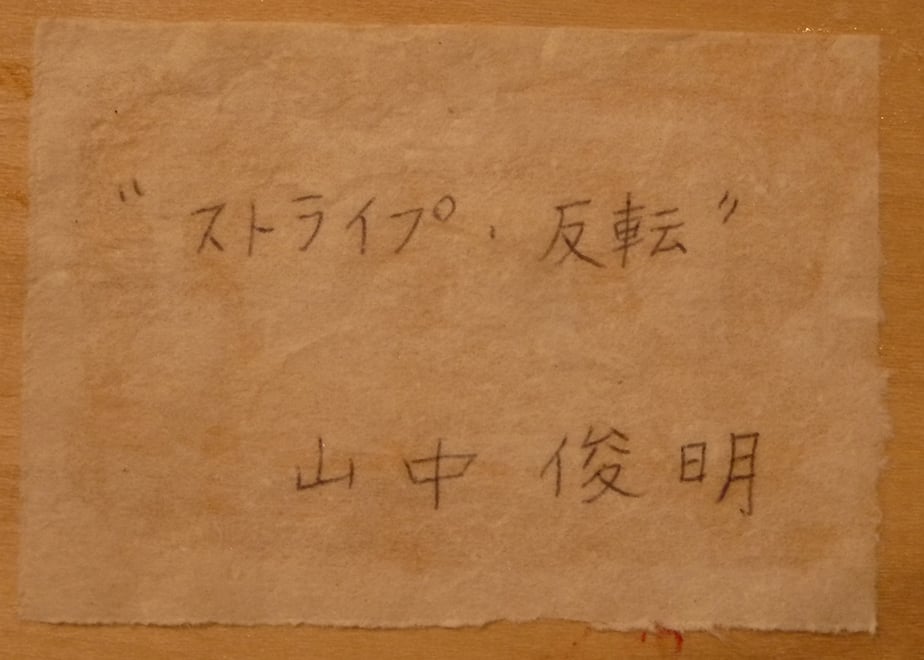 "ストライプ・反転"
山中俊明